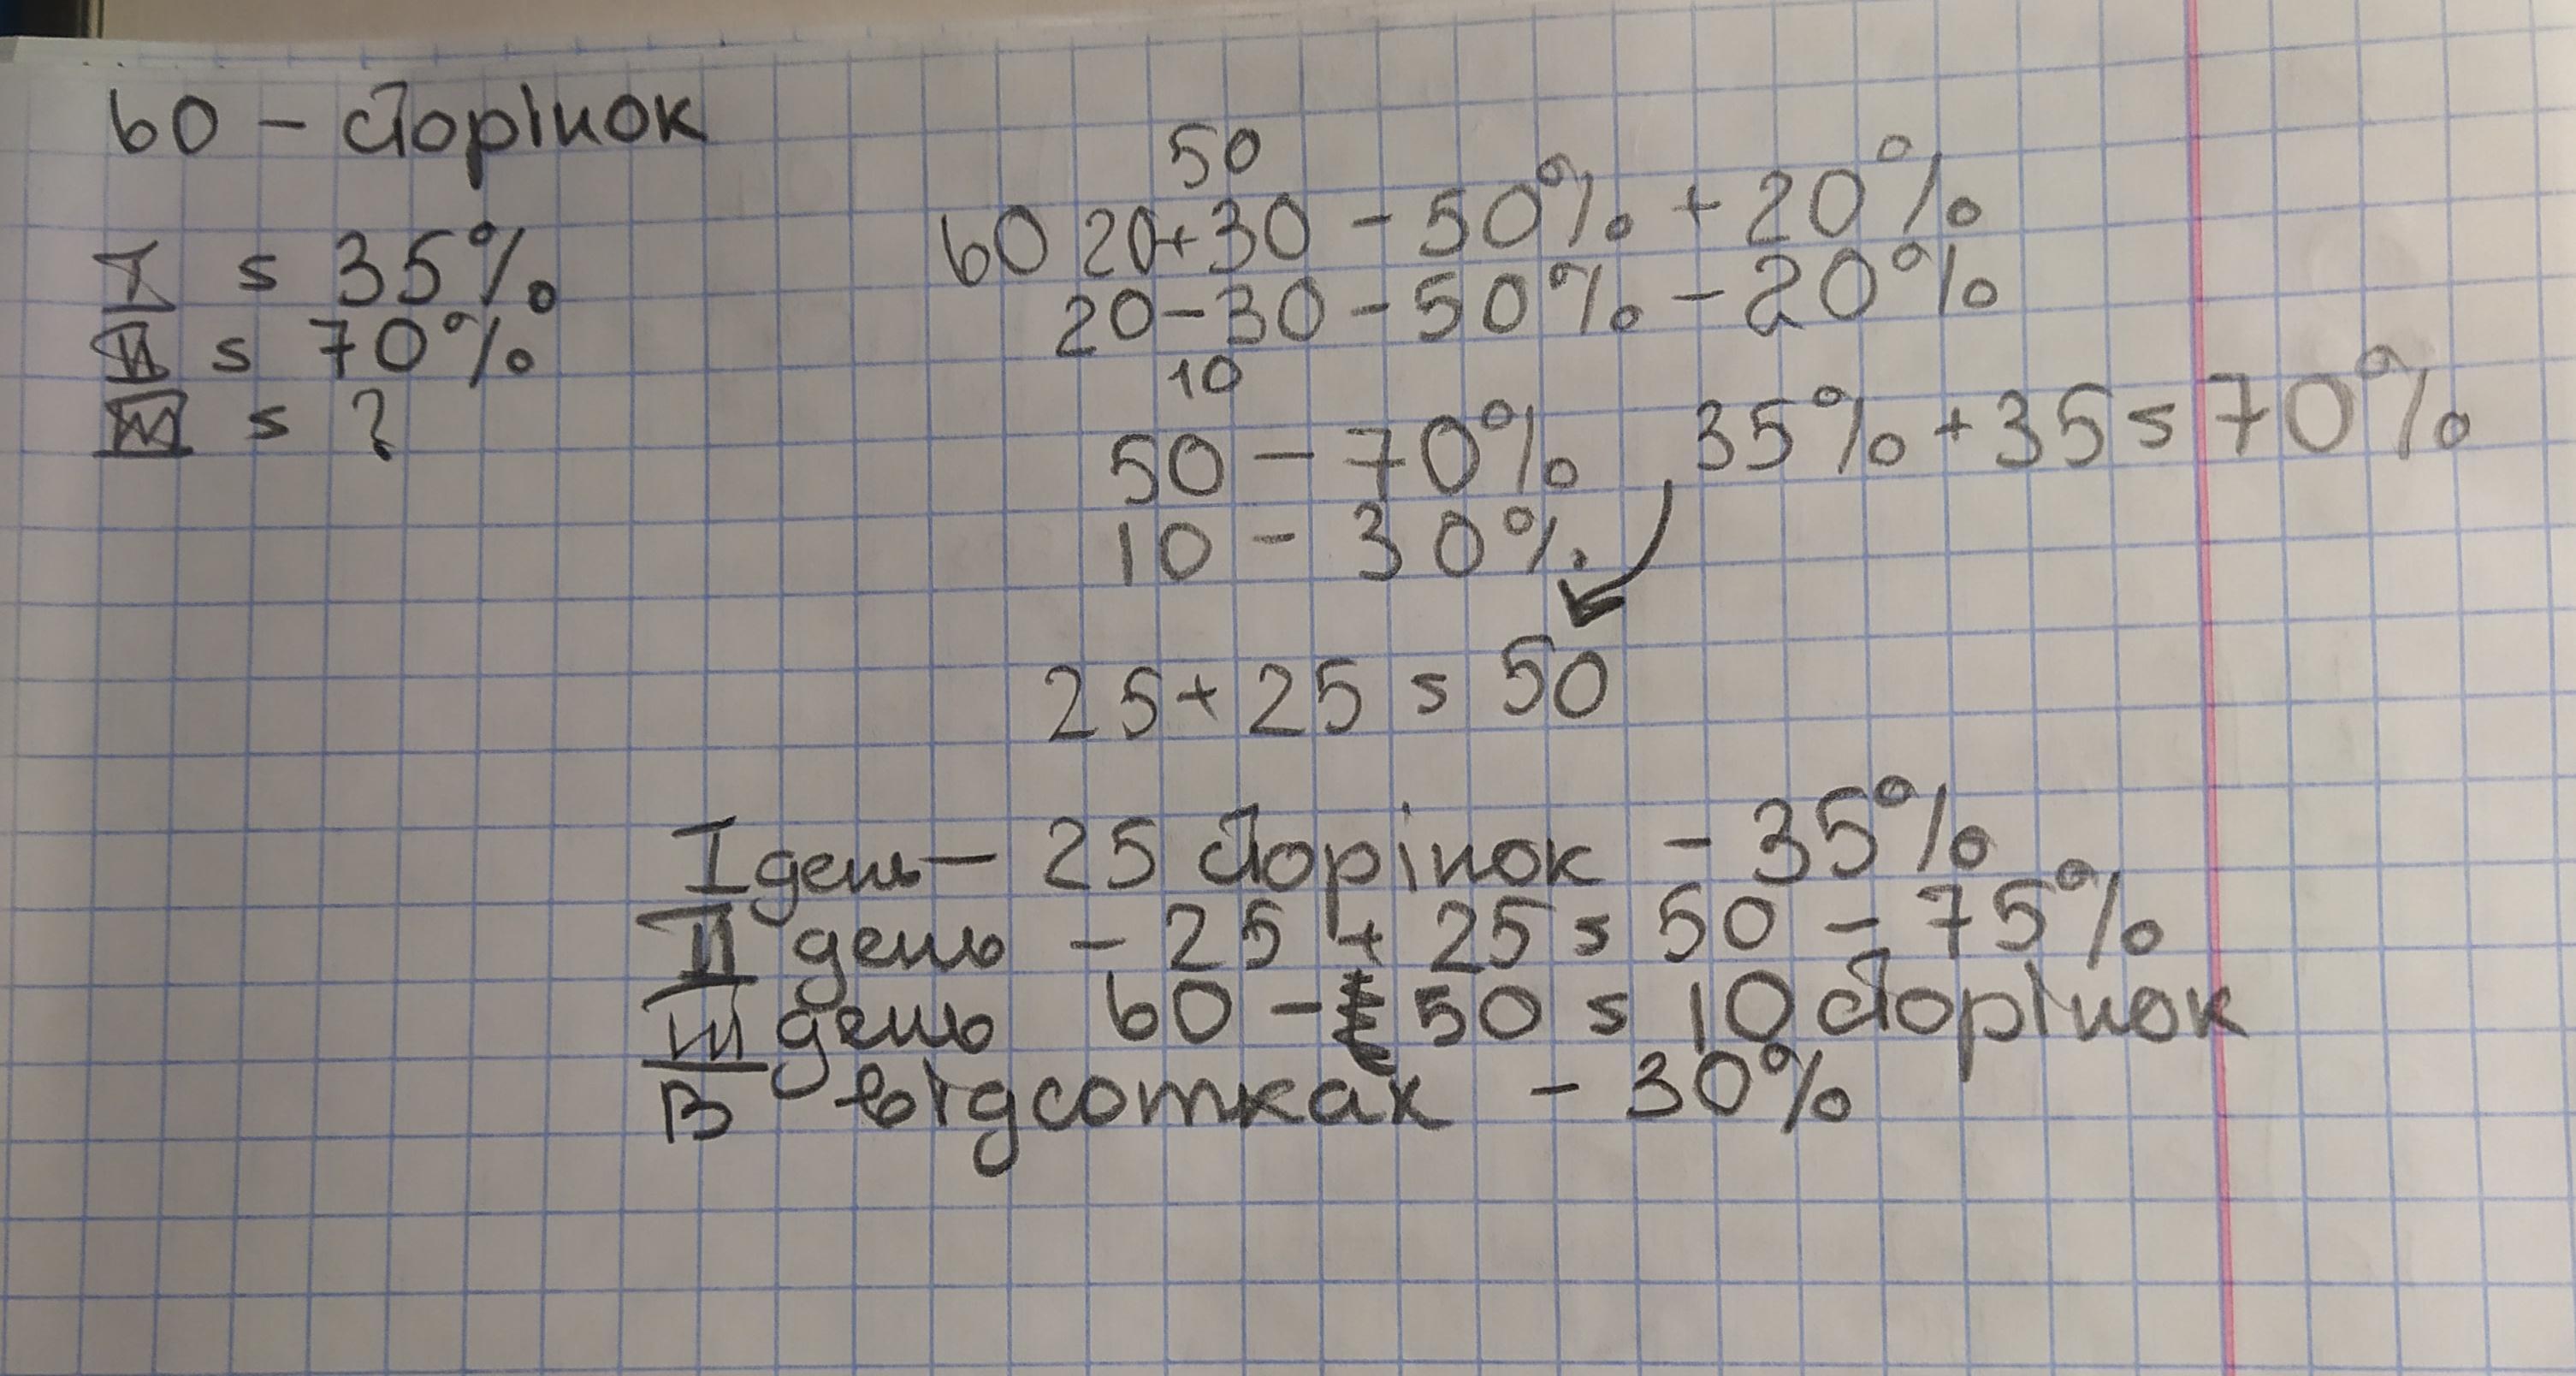 60 - сторінок
I = 35%
II = 70%
III = ?
50
60 20+30 - 50% + 20%
20-30 - 50% - 20%
10
50 - 70%
10 - 30%
35% + 35 = 70%
25 + 25 = 50
I день - 25 сторінок - 35%
II день - 25 + 25 = 50 - 75%
III день 60 - 50 = 10 сторінок
В відсотках - 30%